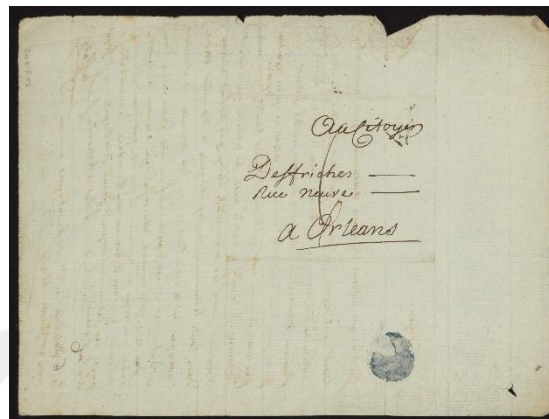 Au Citoyen
Desfriches
Rue neuve
a Orleans